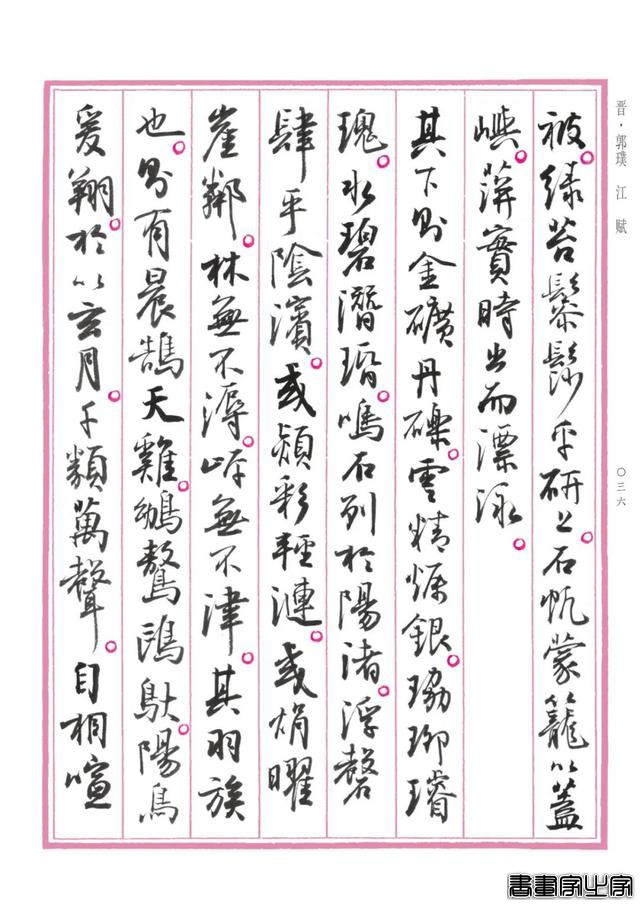 晋·郭璞 江赋
被。緑苔鬖髿乎研上。石帆蒙籠以蓋
嶼。蓱實時出而漂泳。
其下則金礦丹礫。雲精爥銀。珕珋璿
瑰。水碧潛琘。鳴石列於陽渚。浮磬
肆乎陰濱。或熲彩輕漣。或焆曜
崖鄰。林無不溽。岸無不津。其羽族
也。則有晨鵠天雞。鴢鷔鷗䮂。陽鳥
爰翔。於以玄月。千類萬聲。自相喧
〇三六